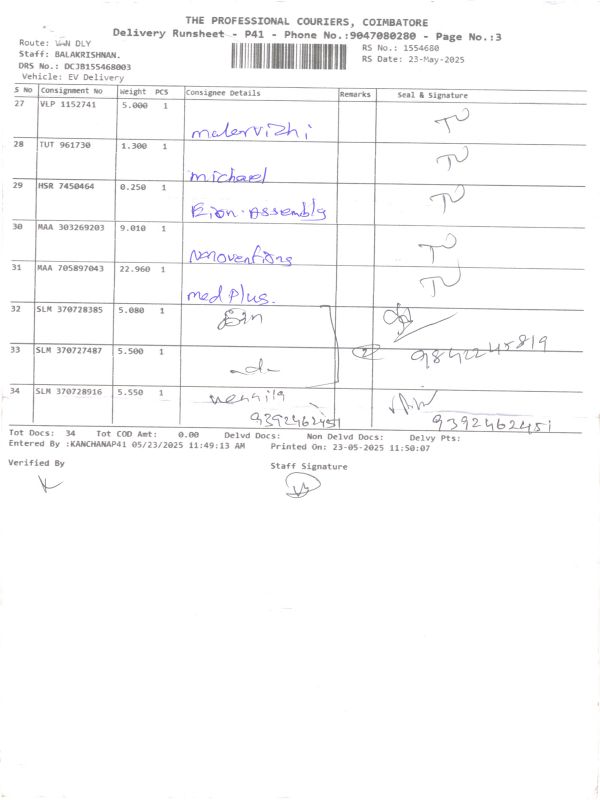 THE PROFESSIONAL COURIERS, COIMBATORE
Delivery Runsheet - P41 - Phone No.:9047080280 - Page No.:3
Route: DLY
Staff: BALAKRISHNAN.
DRS No.: DCJB155468003
Vehicle: EV Delivery
RS No.: 1554680
RS Date: 23-May-2025
S No Consignment No Weight PCS Consignee Details Remarks Seal & Signature
27 VLP 1152741 5.000 1
malarvizhi
28 TUT 961730 1.300 1
michael
29 HSR 7450464 0.250 1
Eion-Assembly
30 MAA 303269203 9.010 1
31 MAA 705897043 22.960 1
med plus.
32 SLM 370728385 5.080 1
33 SLM 370727487 5.500 1
-d-
2
9842245819
34 SLM 370728916 5.550 1
vennila
9392462451
9392462451
Tot Docs: 34 Tot COD Amt: 0.00 Delvd Docs: Non Delvd Docs: Delvy Pts:
Entered By :KANCHANAP41 05/23/2025 11:49:13 AM Printed On: 23-05-2025 11:50:07
Verified By
Staff Signature